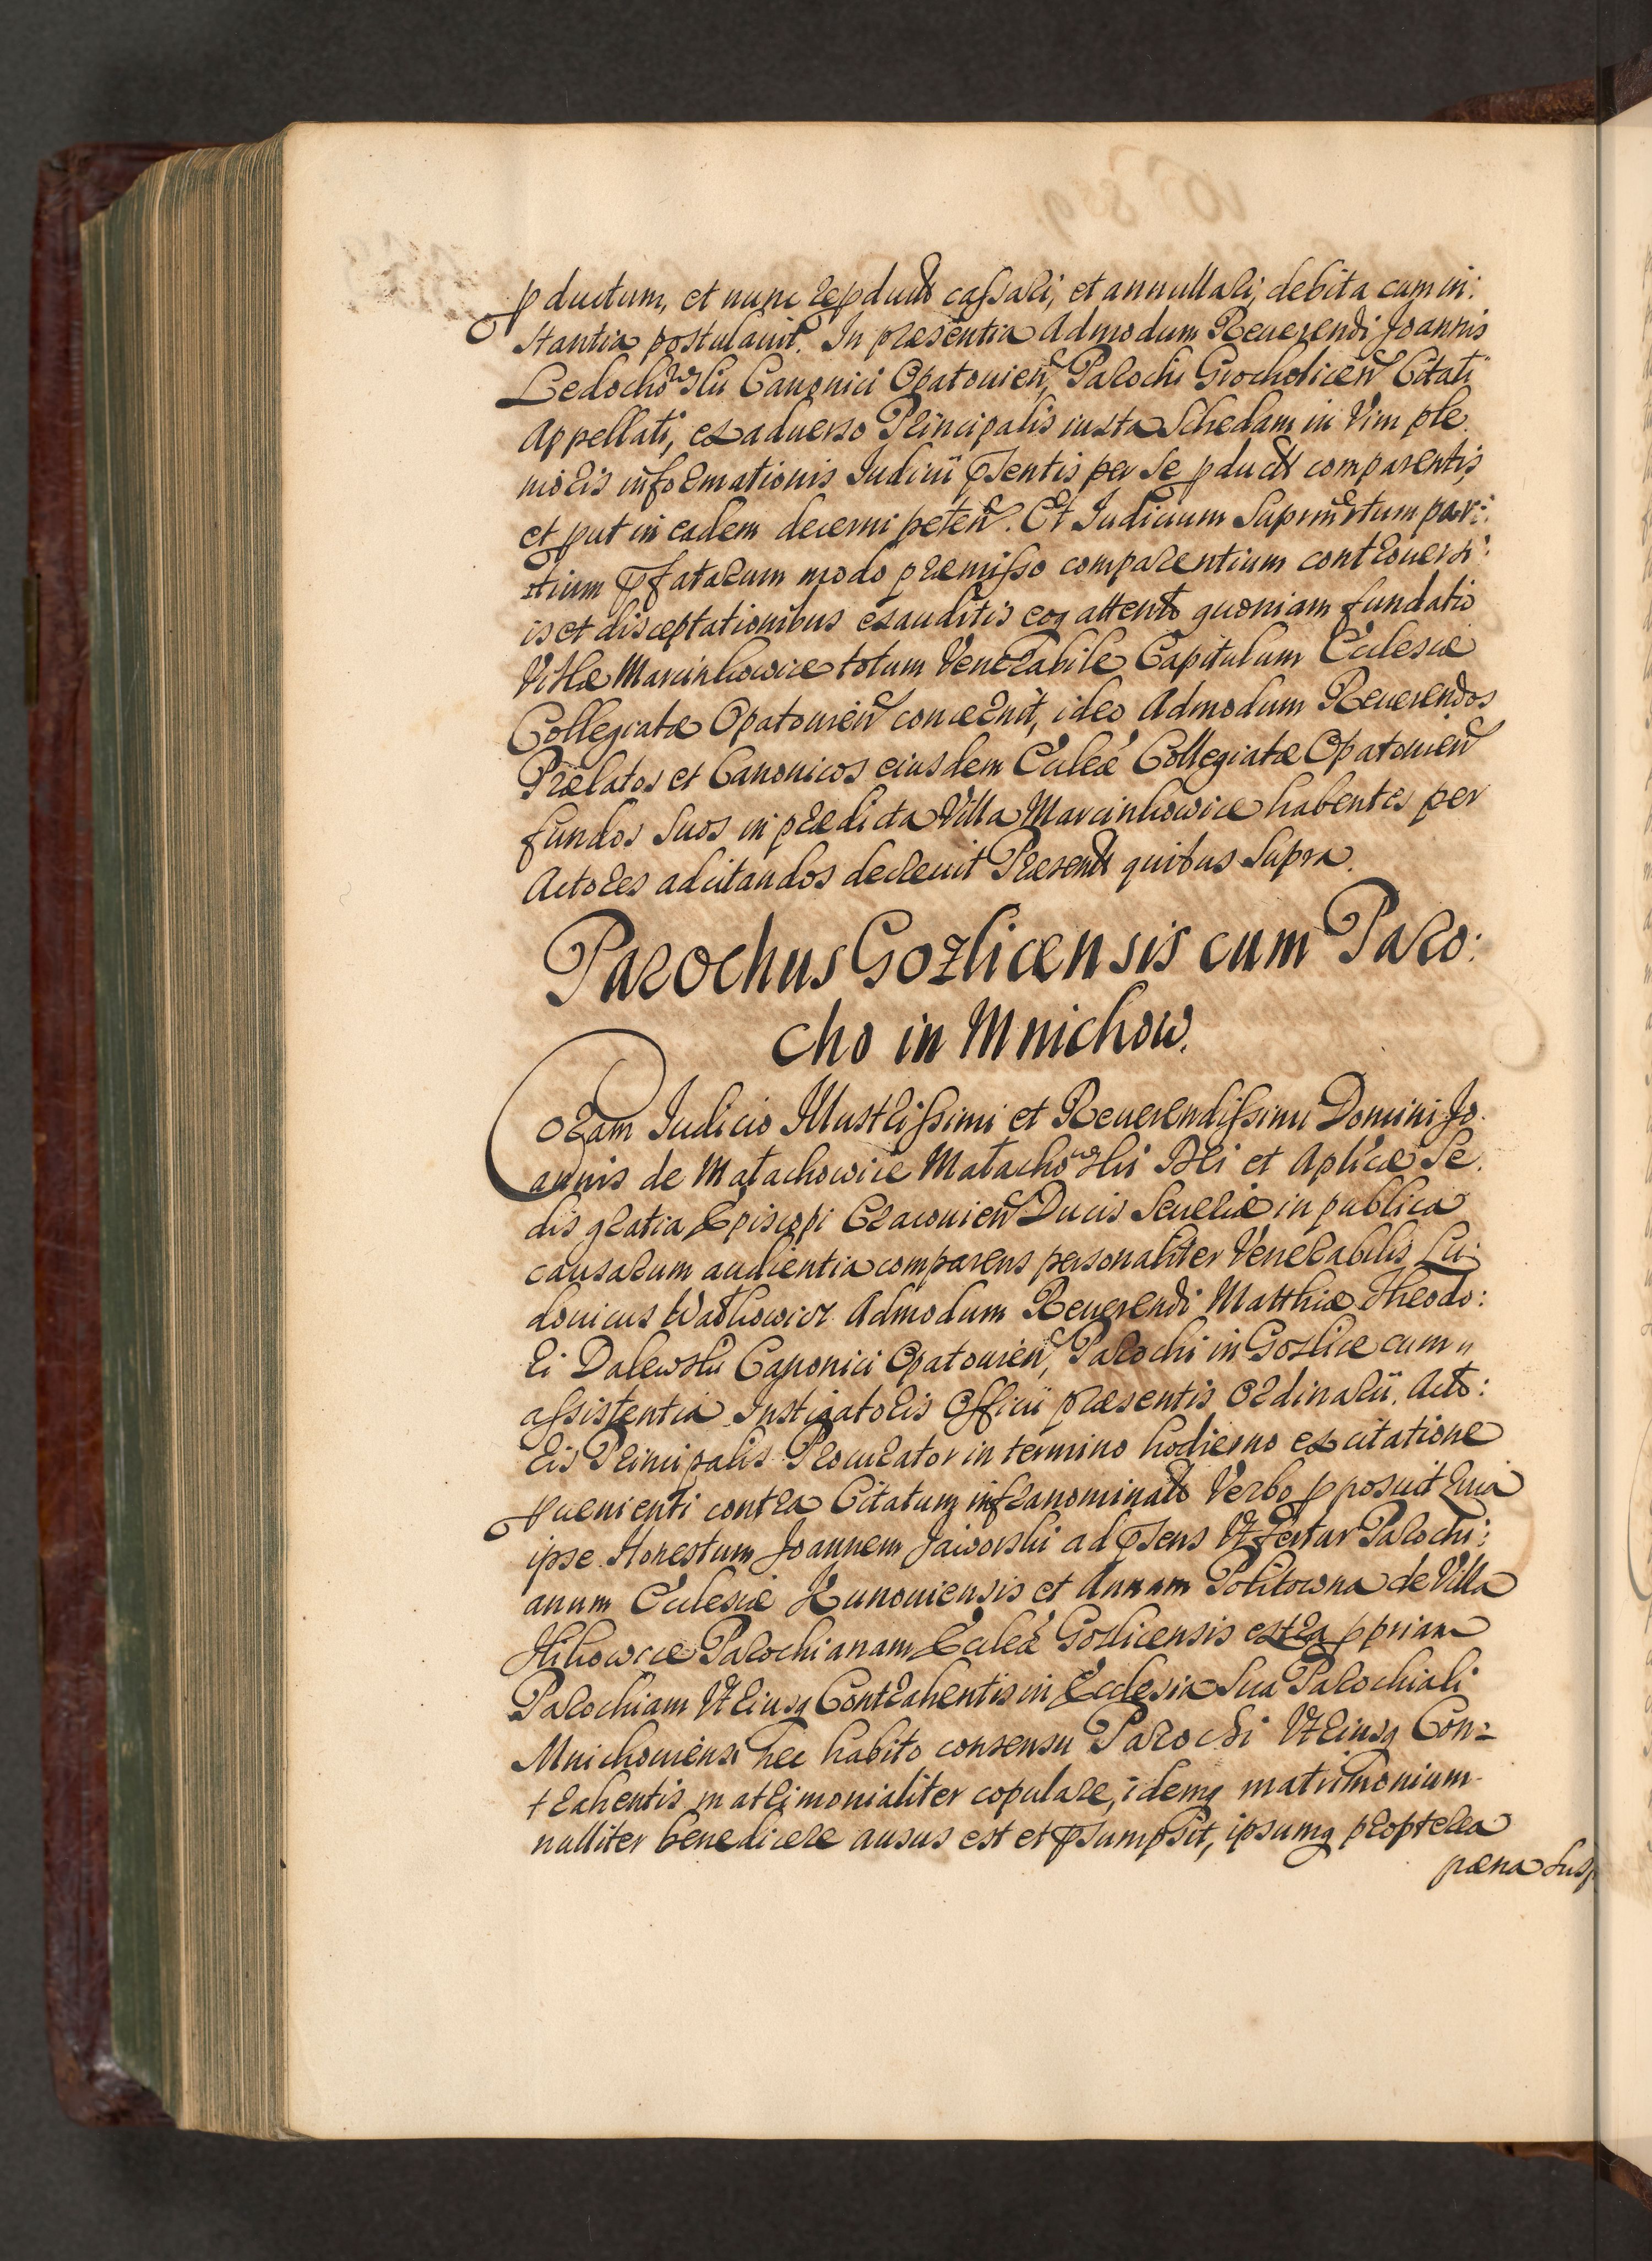 pductum, et nunc repduct cassari, et annullari, debita cum in:
stantia postulavit. In præsentia Admodum Reverendi Joannis
Ledochowski Canonici Opatovien, Parochi Grocholicen Citati
Appellati, ex adverso Principalis iuxta Schedam in Vim ple.
nioris informationis Judicii psentis per se pduct comparentis,
et put in eadem decerni peten. Et Judicium Suprmrtum par:
tium pfatarum modo præmisso comparentium controversi:
is et disceptationibus exauditis eoq attento quoniam fundatio
Villæ Marcinkowice totum Venerabile Capitulum Ecclesiæ
Collegiatæ Opatovien concernit, ideo Admodum Reverendos
Prælatos et Canonicos eiusdem Eccleæ Collegiatæ Opatovien
fundos suos in prædicta Villa Marcinkowice habentes per
Actores adcitandos decrevit Præsentt quibus Supra.
Parochus Gozlicensis cum Paro:
cho in Mnichow.
Coram Judicio Illustrissimi et Reverendissimi Domini Jo.
annis de Małachowice Małachowski Dei et Aplicæ Se.
dis gratia Episcopi Cracovien Ducis Severiæ in publica
causarum audientia comparens personaliter Venerabilis Lu:
dovicus Waśkowicz Admodum Reverendi Matthiæ Theodo:
ri Dalewski Canonici Opatovien, Parochi in Gozlice cum
assistentia Instigatoris Officii præsentis Ordinarii. Acto:
ris Principalis Procurator in termino hodierno ex citatione
pvenienti contra Citatum infranominatt Verbo pposuit Quia
ipse Honestum Joannem Jaiworski ad psens Vt fertur Parochi:
anum Ecclesiæ Kunoviensis et Annam Politowna de Villa
Nikowice Parochianam Eccleæ Gozlicensis extra ppriam
Parochiam Vtriusq Contrahentis in Ecclesia sua Parochiali
Mnichoviensi nec habito consensu Parochi Vtriusq Con=
trahentis matrimonialiter copulare, idemq matrimonium
nulliter benedicere ausus est et psumpsit, ipsumq propterea
pæna susp